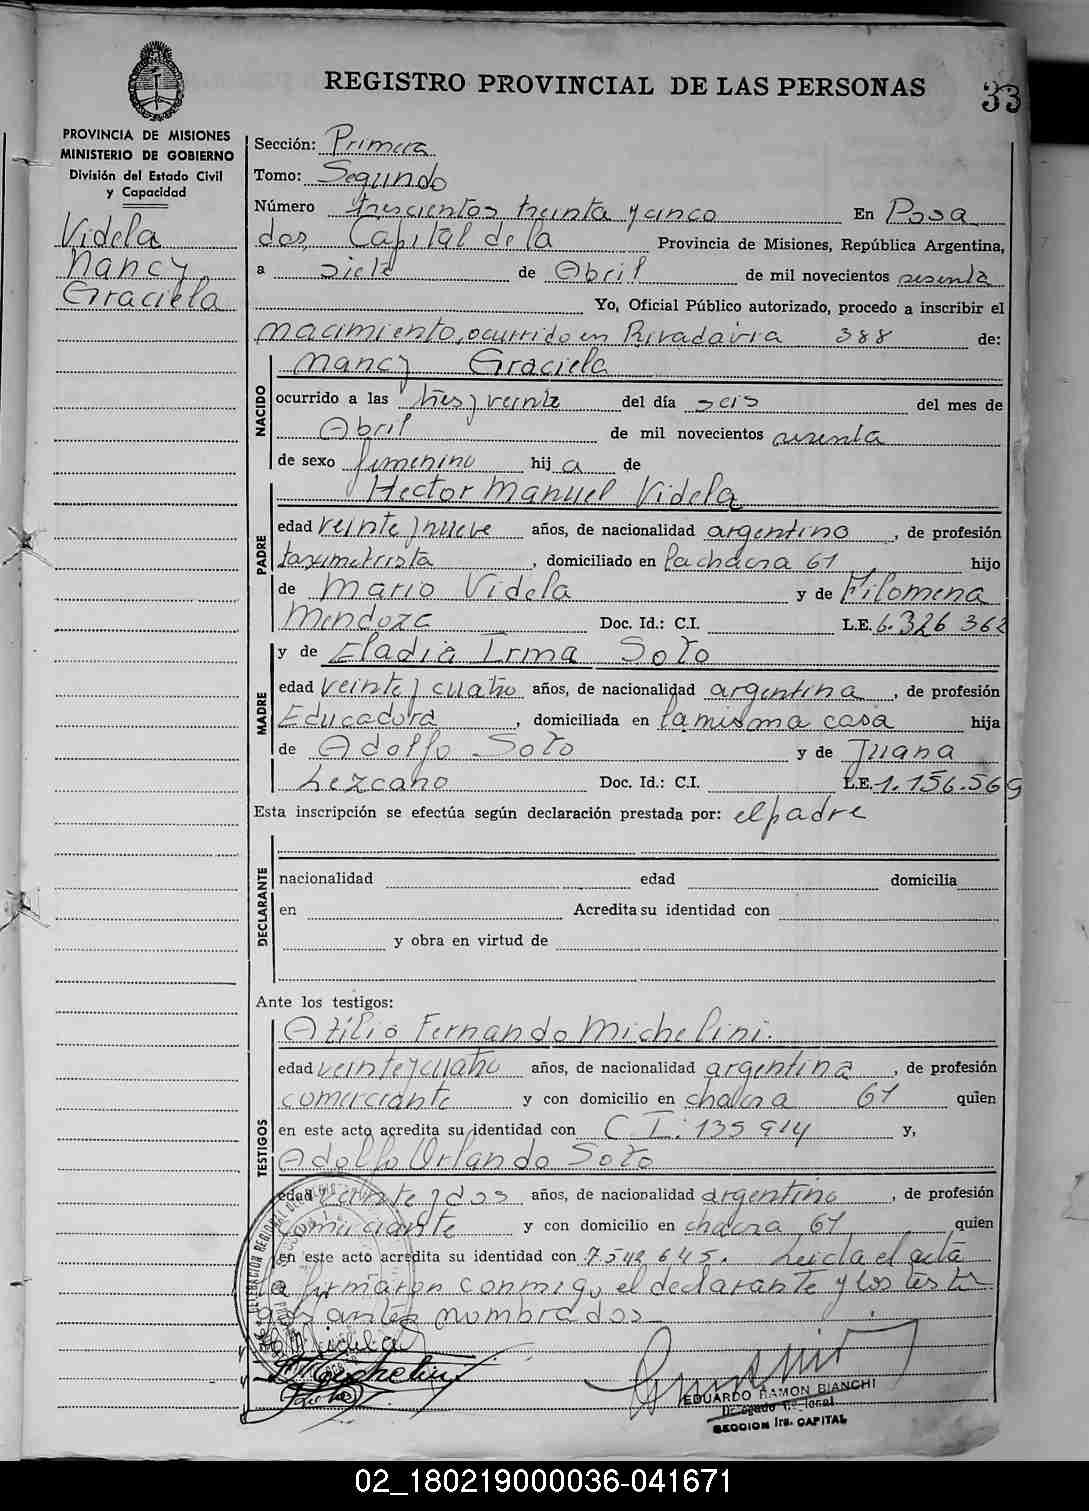 REGISTRO PROVINCIAL DE LAS PERSONAS
33
PROVINCIA DE MISIONES
MINISTERIO DE GOBIERNO
División del Estado Civil
y Capacidad
Videla
Nancy
Graciela
Sección: Primera
Tomo: Segundo
Número trescientos treinta y cinco En Posa
das, Capital de la Provincia de Misiones, República Argentina,
a siete de Abril de mil novecientos sesenta
Yo, Oficial Público autorizado, procedo a inscribir el
nacimiento, ocurrido en Rivadavia 388 de:
NACIDO
Nancy Graciela
ocurrido a las tres y veinte del día seis del mes de
Abril de mil novecientos sesenta
de sexo femenino hij a de
PADRE
Hector Manuel Videla
edad veinte y nueve años, de nacionalidad argentino, de profesión
taximetrista, domiciliado en la chacra 61 hijo
de Mario Videla y de Filomena
Mendoza Doc. Id.: C.I. L.E. 6.326 362
MADRE
y de Eladia Irma Soto
edad veinte y cuatro años, de nacionalidad argentina, de profesión
Educadora, domiciliada en la misma casa hija
de Adolfo Soto y de Juana
Lezcano Doc. Id.: C.I. L.E. 1.156.569
Esta inscripción se efectúa según declaración prestada por: el padre
DECLARANTE
nacionalidad edad domicilia
en Acredita su identidad con
y obra en virtud de
Ante los testigos:
TESTIGOS
Atilio Fernando Michelini.
edad veinte y cuatro años, de nacionalidad argentina, de profesión
comerciante y con domicilio en chacra 61 quien
en este acto acredita su identidad con C.I: 135 914 y,
Adolfo Orlando Soto
edad veinte y dos años, de nacionalidad argentino, de profesión
comerciante y con domicilio en chacra 61 quien
en este acto acredita su identidad con 7542645. Leida el acta
la firmaron conmigo el declarante y los testi
gos antes nombrados
Videla
Michelini
EDUARDO RAMON BIANCHI
SECCION 1ra. CAPITAL
02_180219000036-041671